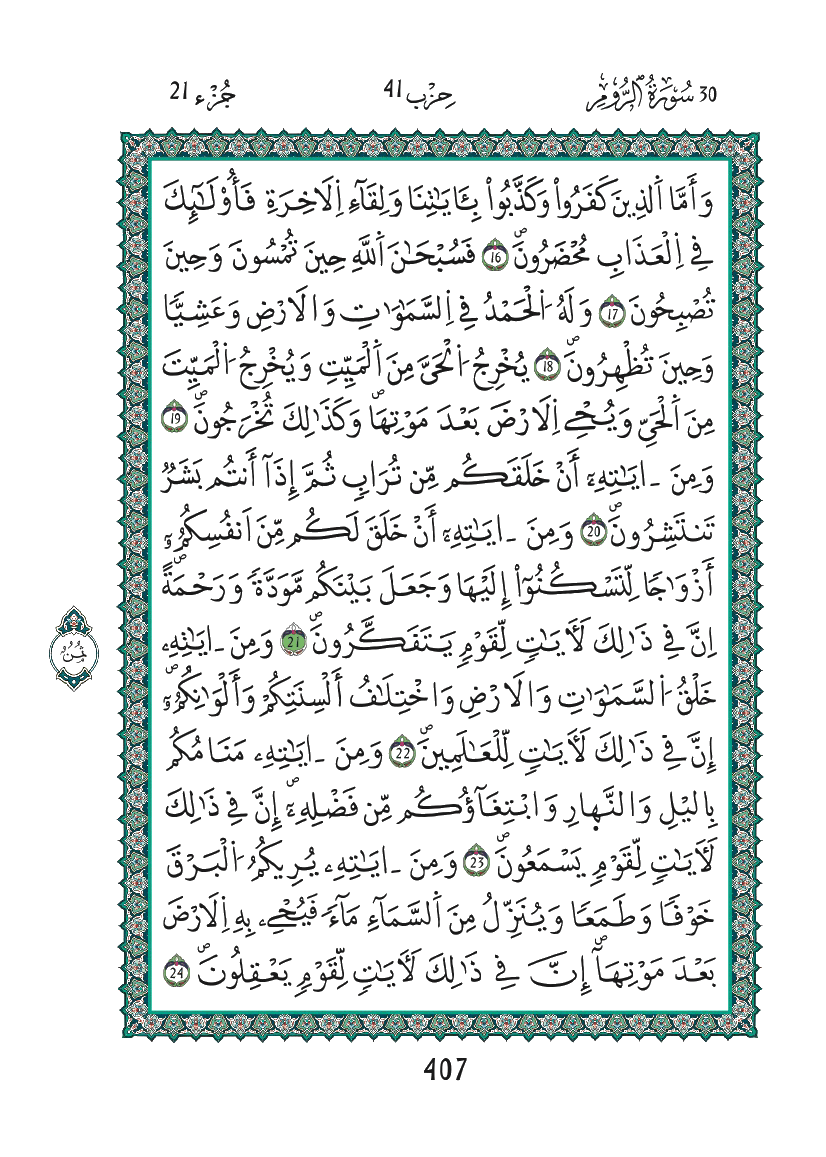 30 سُورَةُ الرُّومِ
حِزْب 41
جُزْء 21
وَأَمَّا اَ۬لذِينَ كَفَرُواْ وَكَذَّبُواْ بِـَٔايَٰتِنَا وَلِقَآءِ اِ۬لَاخِرَةِ فَأُوْلَٰٓئِكَ
فِے اِ۬لْعَذَابِ مُحْضَرُونَۖ 16 فَسُبْحَٰنَ اَ۬للَّهِ حِينَ تُمْسُونَ وَحِينَ
تُصْبِحُونَ 17 وَلَهُ اُ۬لْحَمْدُ فِے اِ۬لسَّمَٰوَٰتِ وَالَارْضِ وَعَشِيّاٗ
وَحِينَ تُظْهِرُونَۖ 18 يُخْرِجُ اُ۬لْحَيَّ مِنَ اَ۬لْمَيِّتِ وَيُخْرِجُ اُ۬لْمَيِّتَ
مِنَ اَ۬لْحَيِّ وَيُحْيِ اِ۬لَارْضَ بَعْدَ مَوْتِهَاۖ وَكَذَٰلِكَ تُخْرَجُونَۖ 19
وَمِنَ اٰيَٰتِهِۦٓ أَنْ خَلَقَكُم مِّن تُرَابٖ ثُمَّ إِذَآ أَنتُم بَشَرٞ
تَنتَشِرُونَۖ 20 وَمِنَ اٰيَٰتِهِۦٓ أَنْ خَلَقَ لَكُم مِّنَ اَنفُسِكُمُۥٓ
أَزْوَٰجاٗ لِّتَسْكُنُوٓاْ إِلَيْهَا وَجَعَلَ بَيْنَكُم مَّوَدَّةٗ وَرَحْمَةًۖ
اِنَّ فِے ذَٰلِكَ لَأٓيَٰتٖ لِّقَوْمٖ يَتَفَكَّرُونَۖ 21 وَمِنَ اٰيَٰتِهِۦ
خَلْقُ اُ۬لسَّمَٰوَٰتِ وَالَارْضِ وَاخْتِلَٰفُ أَلْسِنَتِكُمْ وَأَلْوَٰنِكُمُۥٓۖ
إِنَّ فِے ذَٰلِكَ لَأٓيَٰتٖ لِّلْعَٰلَمِينَۖ 22 وَمِنَ اٰيَٰتِهِۦ مَنَامُكُم
بِاليْلِ وَالنَّهارِ وَابْتِغَآؤُكُم مِّن فَضْلِهِۦٓۖ إِنَّ فِے ذَٰلِكَ
لَأٓيَٰتٖ لِّقَوْمٖ يَسْمَعُونَۖ 23 وَمِنَ اٰيَٰتِهِۦ يُرِيكُمُ اُ۬لْبَرْقَ
خَوْفاٗ وَطَمَعاٗ وَيُنَزِّلُ مِنَ اَ۬لسَّمَآءِ مَآءٗ فَيُحْيِۦ بِهِ اِ۬لَارْضَ
بَعْدَ مَوْتِهَآۖ إِنَّ فِے ذَٰلِكَ لَأٓيَٰتٖ لِّقَوْمٖ يَعْقِلُونَۖ 24
ثُمُنُ
407